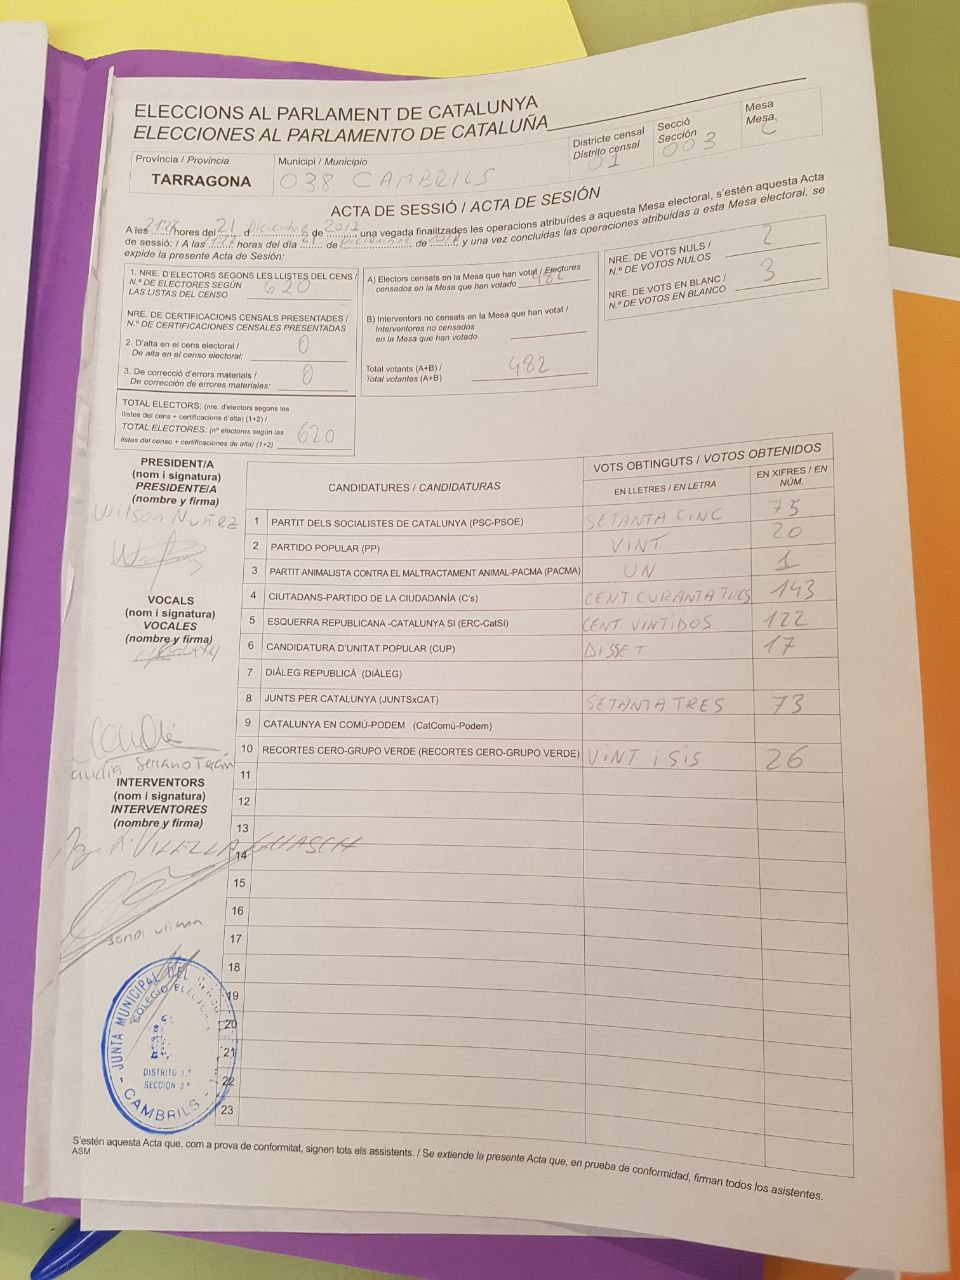 ELECCIONS AL PARLAMENT DE CATALUNYA
ELECCIONES AL PARLAMENTO DE CATALUÑA
Província / Provincia
TARRAGONA
Municipi / Municipio
038 CAMBRILS
Districte censal
Distrito censal
01
Secció
Sección
003
Mesa
Mesa
C
ACTA DE SESSIÓ / ACTA DE SESIÓN
A les hores del 21 d Diciembre de 2017 una vegada finalitzades les operacions atribuïdes a aquesta Mesa electoral, s'estén aquesta Acta
de sessió: / A las horas del día 21 de Diciembre de 2017 y una vez concluidas las operaciones atribuidas a esta Mesa electoral, se
expide la presente Acta de Sesión:
1. NRE. D'ELECTORS SEGONS LES LLISTES DEL CENS /
N.º DE ELECTORES SEGÚN
LAS LISTAS DEL CENSO 620
NRE. DE CERTIFICACIONS CENSALS PRESENTADES /
N.º DE CERTIFICACIONES CENSALES PRESENTADAS
2. D'alta en el cens electoral /
De alta en el censo electoral: 0
3. De correcció d'errors materials /
De corrección de errores materiales: 0
TOTAL ELECTORS: (nre. d'electors segons les
llistes del cens + certificacions d'alta) (1+2) /
TOTAL ELECTORES: (nº electores según las
listas del censo + certificaciones de alta) (1+2) 620
A) Electors censats en la Mesa que han votat / Electores
censados en la Mesa que han votado 482
B) Interventors no censats en la Mesa que han votat /
Interventores no censados
en la Mesa que han votado
Total votants (A+B) /
Total votantes (A+B) 482
NRE. DE VOTS NULS /
N.º DE VOTOS NULOS 2
NRE. DE VOTS EN BLANC /
N.º DE VOTOS EN BLANCO 3
PRESIDENT/A
(nom i signatura)
PRESIDENTE/A
(nombre y firma)
Wilson Nuñez
VOCALS
(nom i signatura)
VOCALES
(nombre y firma)
Serrano Terán
INTERVENTORS
(nom i signatura)
INTERVENTORES
(nombre y firma)
VILELLA GUASCH
CANDIDATURES / CANDIDATURAS
VOTS OBTINGUTS / VOTOS OBTENIDOS
EN LLETRES / EN LETRA
EN XIFRES / EN
NÚM.
1 PARTIT DELS SOCIALISTES DE CATALUNYA (PSC-PSOE) SETANTA CINC 75
2 PARTIDO POPULAR (PP) VINT 20
3 PARTIT ANIMALISTA CONTRA EL MALTRACTAMENT ANIMAL-PACMA (PACMA) UN 1
4 CIUTADANS-PARTIDO DE LA CIUDADANÍA (C's) CENT CURANTA TRES 143
5 ESQUERRA REPUBLICANA -CATALUNYA SI (ERC-CatSí) CENT VINTIDOS 122
6 CANDIDATURA D'UNITAT POPULAR (CUP) DISSET 17
7 DIÀLEG REPUBLICÀ (DIÀLEG)
8 JUNTS PER CATALUNYA (JUNTSxCAT) SETANTA TRES 73
9 CATALUNYA EN COMÚ-PODEM (CatComú-Podem)
10 RECORTES CERO-GRUPO VERDE (RECORTES CERO-GRUPO VERDE) VINT i SIS 26
11
12
13
14
15
16
17
18
19
20
21
22
23
JUNTA MUNICIPAL DEL
COLEGIO
DISTRITO 1.º
SECCION 3.ª
CAMBRILS
S'estén aquesta Acta que, com a prova de conformitat, signen tots els assistents. / Se extiende la presente Acta que, en prueba de conformidad, firman todos los asistentes.
ASM